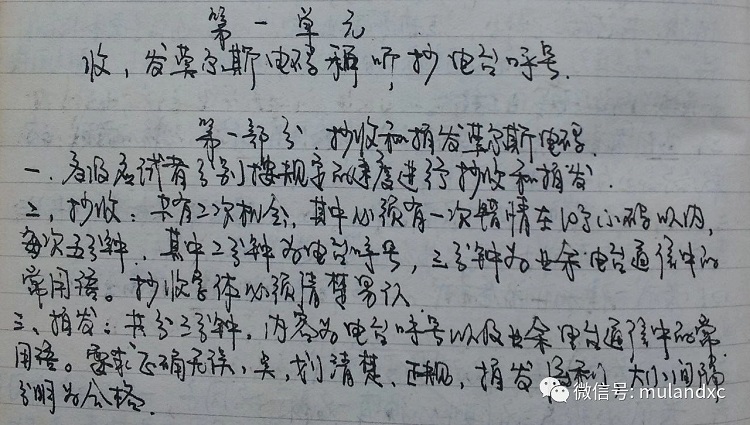 第一单元
收，发莫尔斯电码和听抄电台呼号.
第一部分．抄收和拍发莫尔斯电码.
一．各级应试者分别按规定的速度进行抄收和拍发．
二，抄收：共有二次机会，其中必须有一次错情在10个小码以内，
每次五分钟．其中2分钟为电台呼号，三分钟为业余电台通信中的
常用语。抄收字体必须清楚易认
三、拍发：共分三分钟，内容为电台呼号以及业余电台通信中的常
用语。要求正确无误，点，划清楚、正规，拍发 大小间隔
分明为合格.
微信号: mulandxc